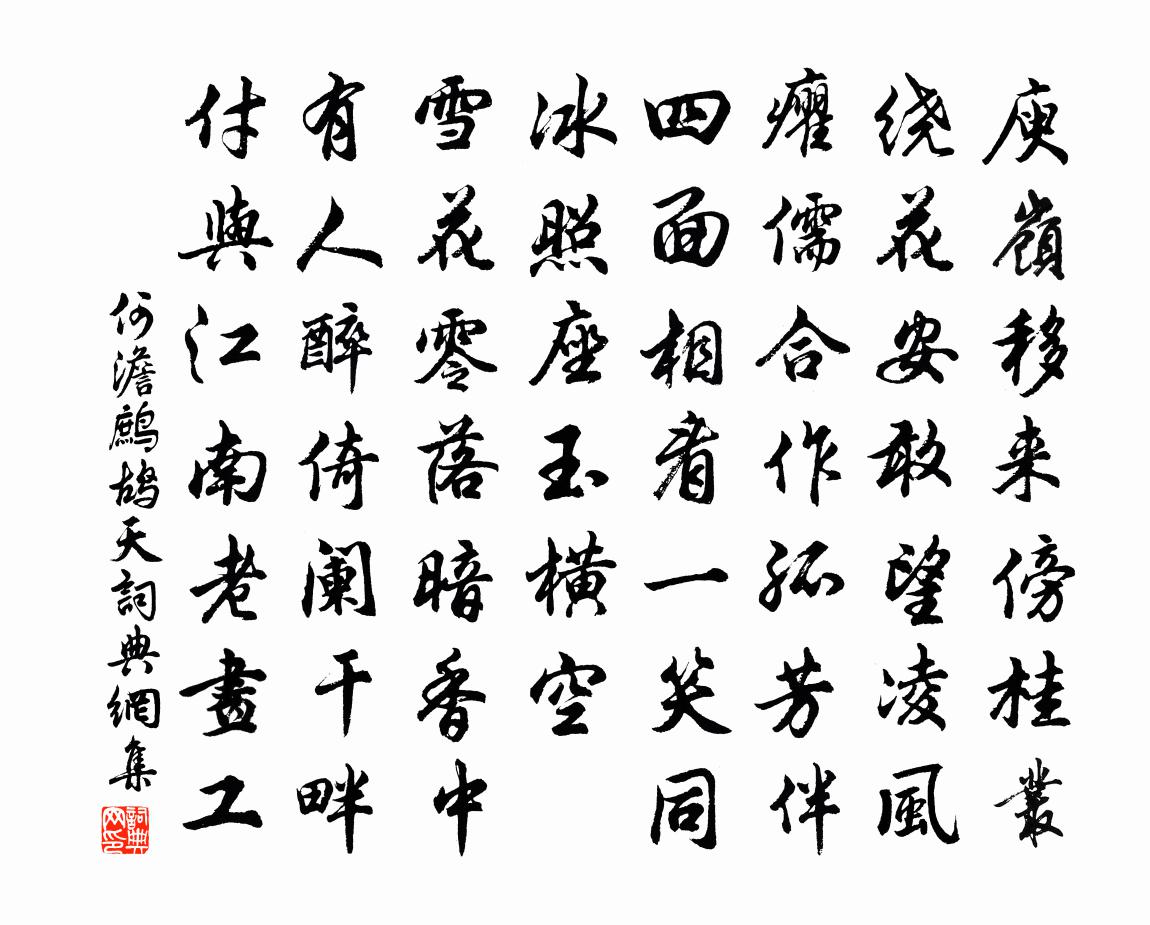 庾嶺移来傍桂叢
绕花安敢望凌風
癯儒合作孤芳伴
四面相看一笑同
冰照座玉橫空
雪花零落暗香中
有人醉倚阑干畔
付與江南老畫工
何澹鷓鴣天詞典網集
詞典网印